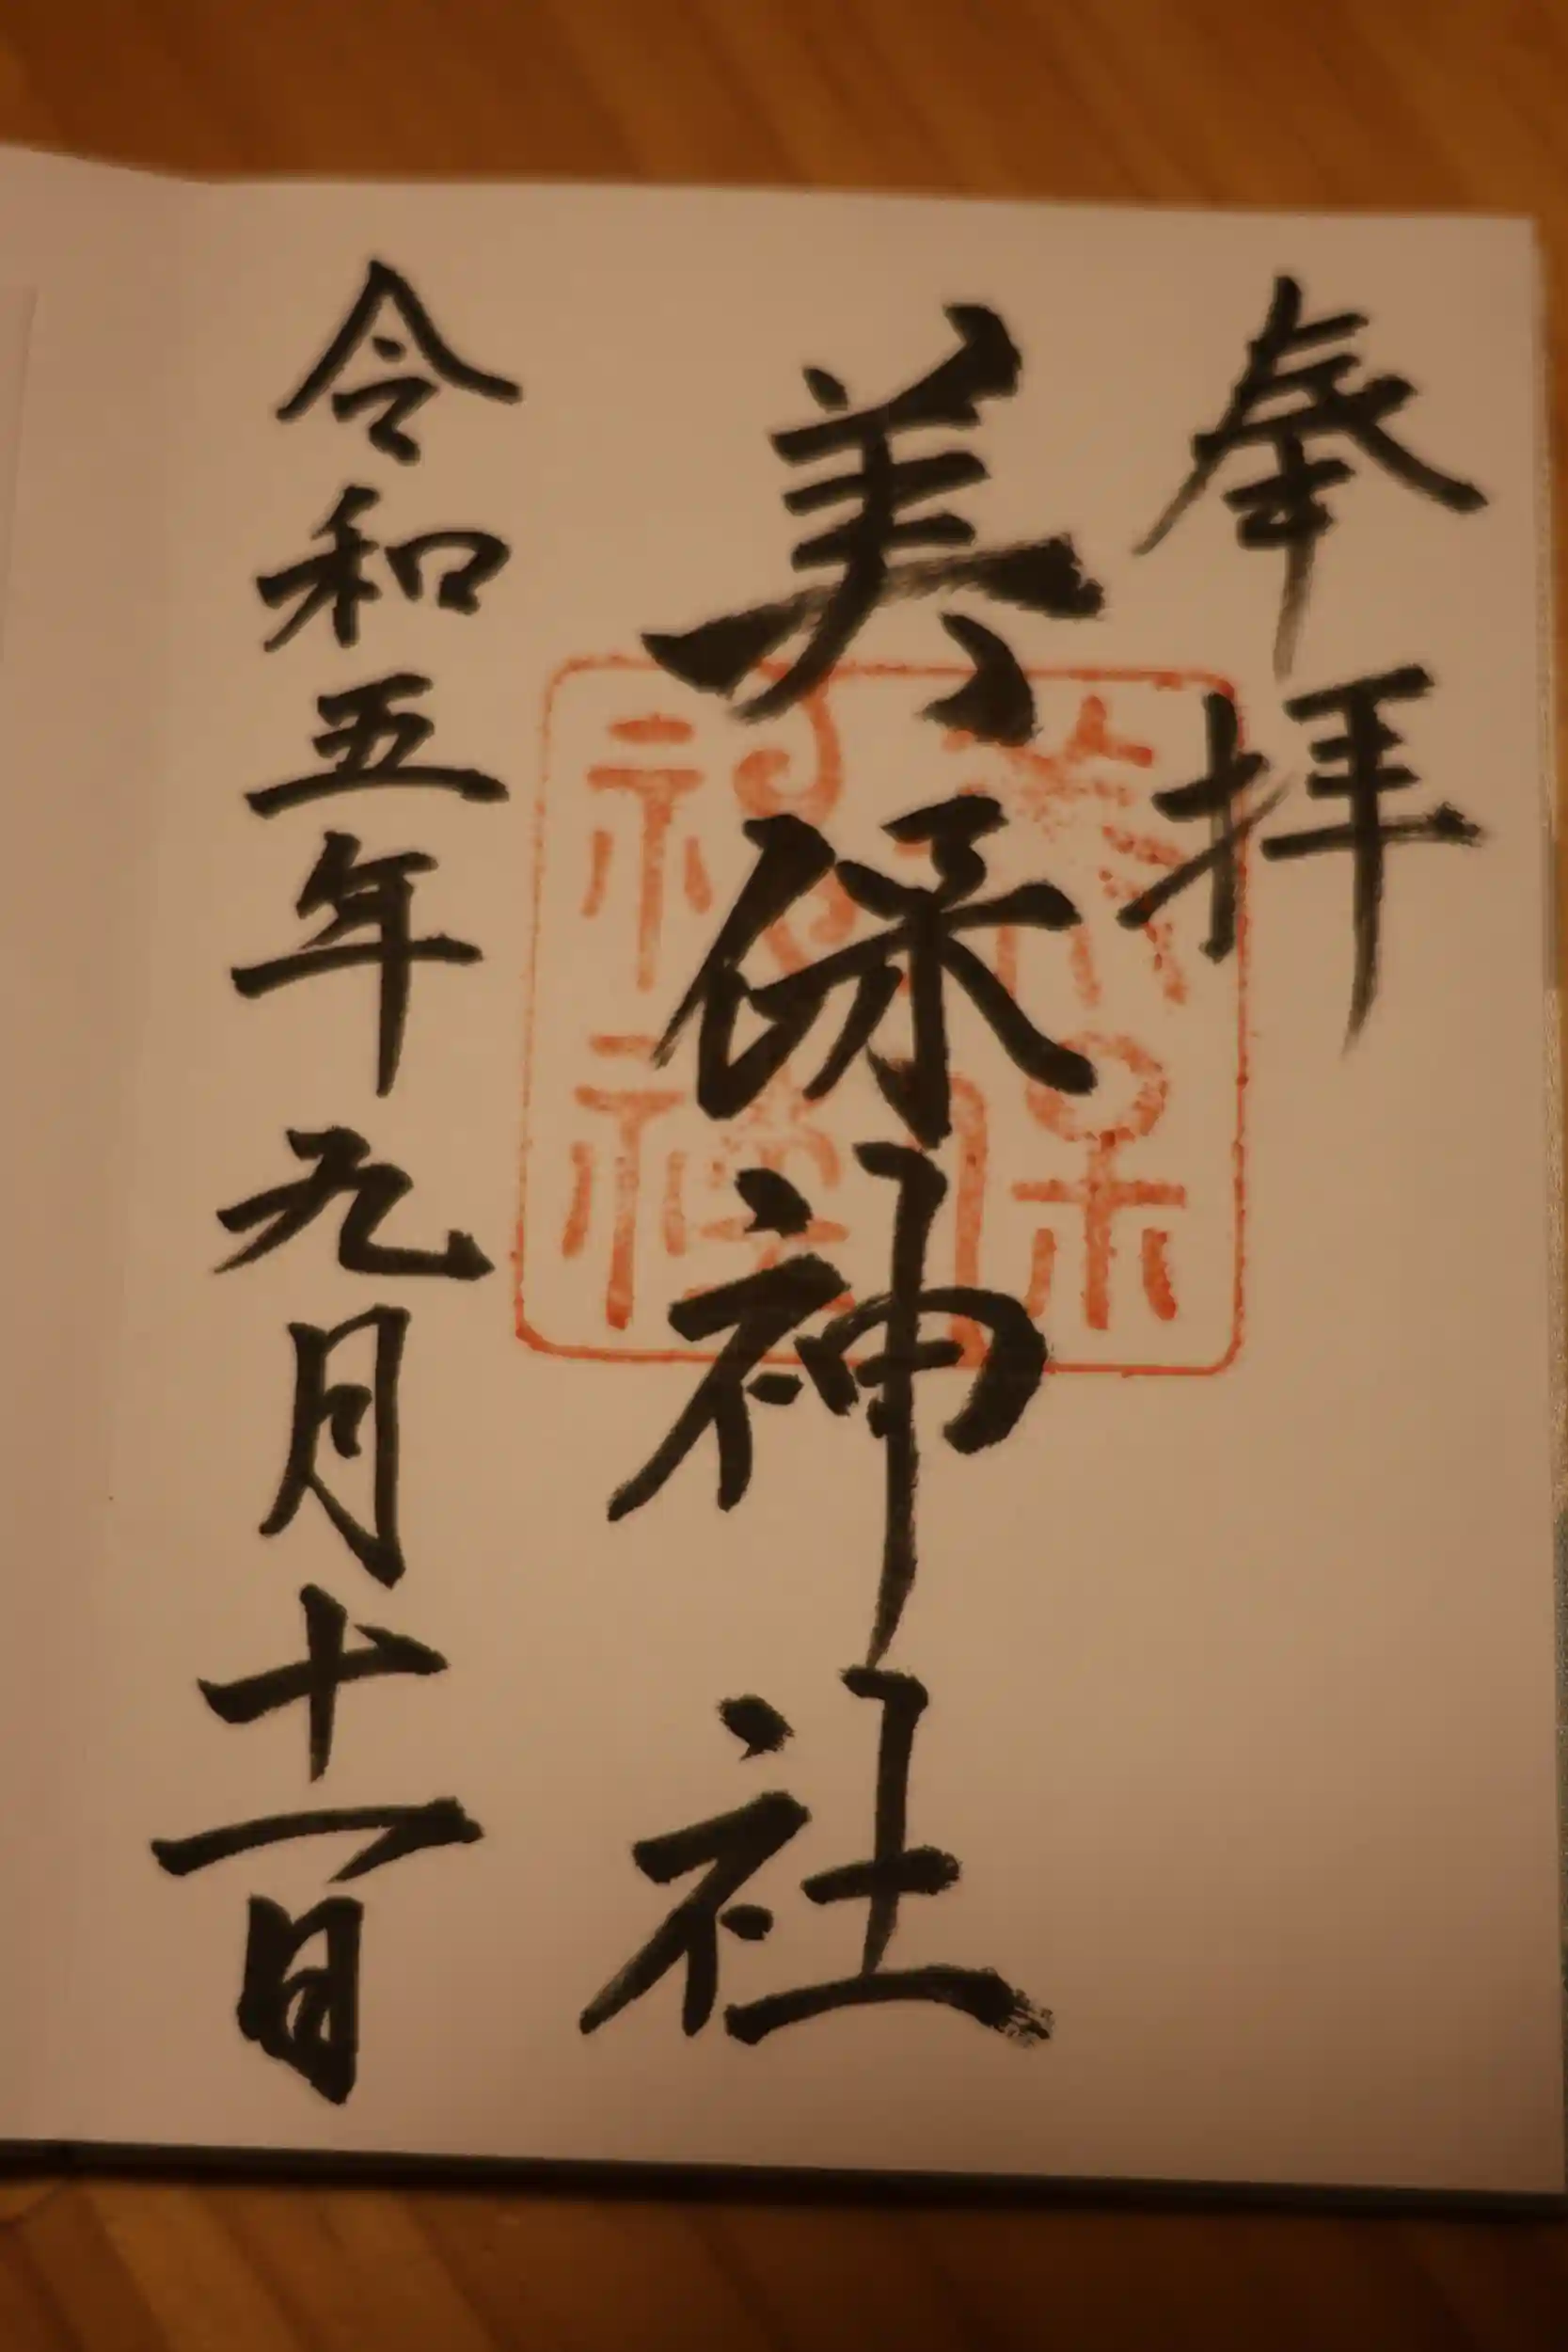 奉拝
美保神社
美保神社
令和五年九月十一日